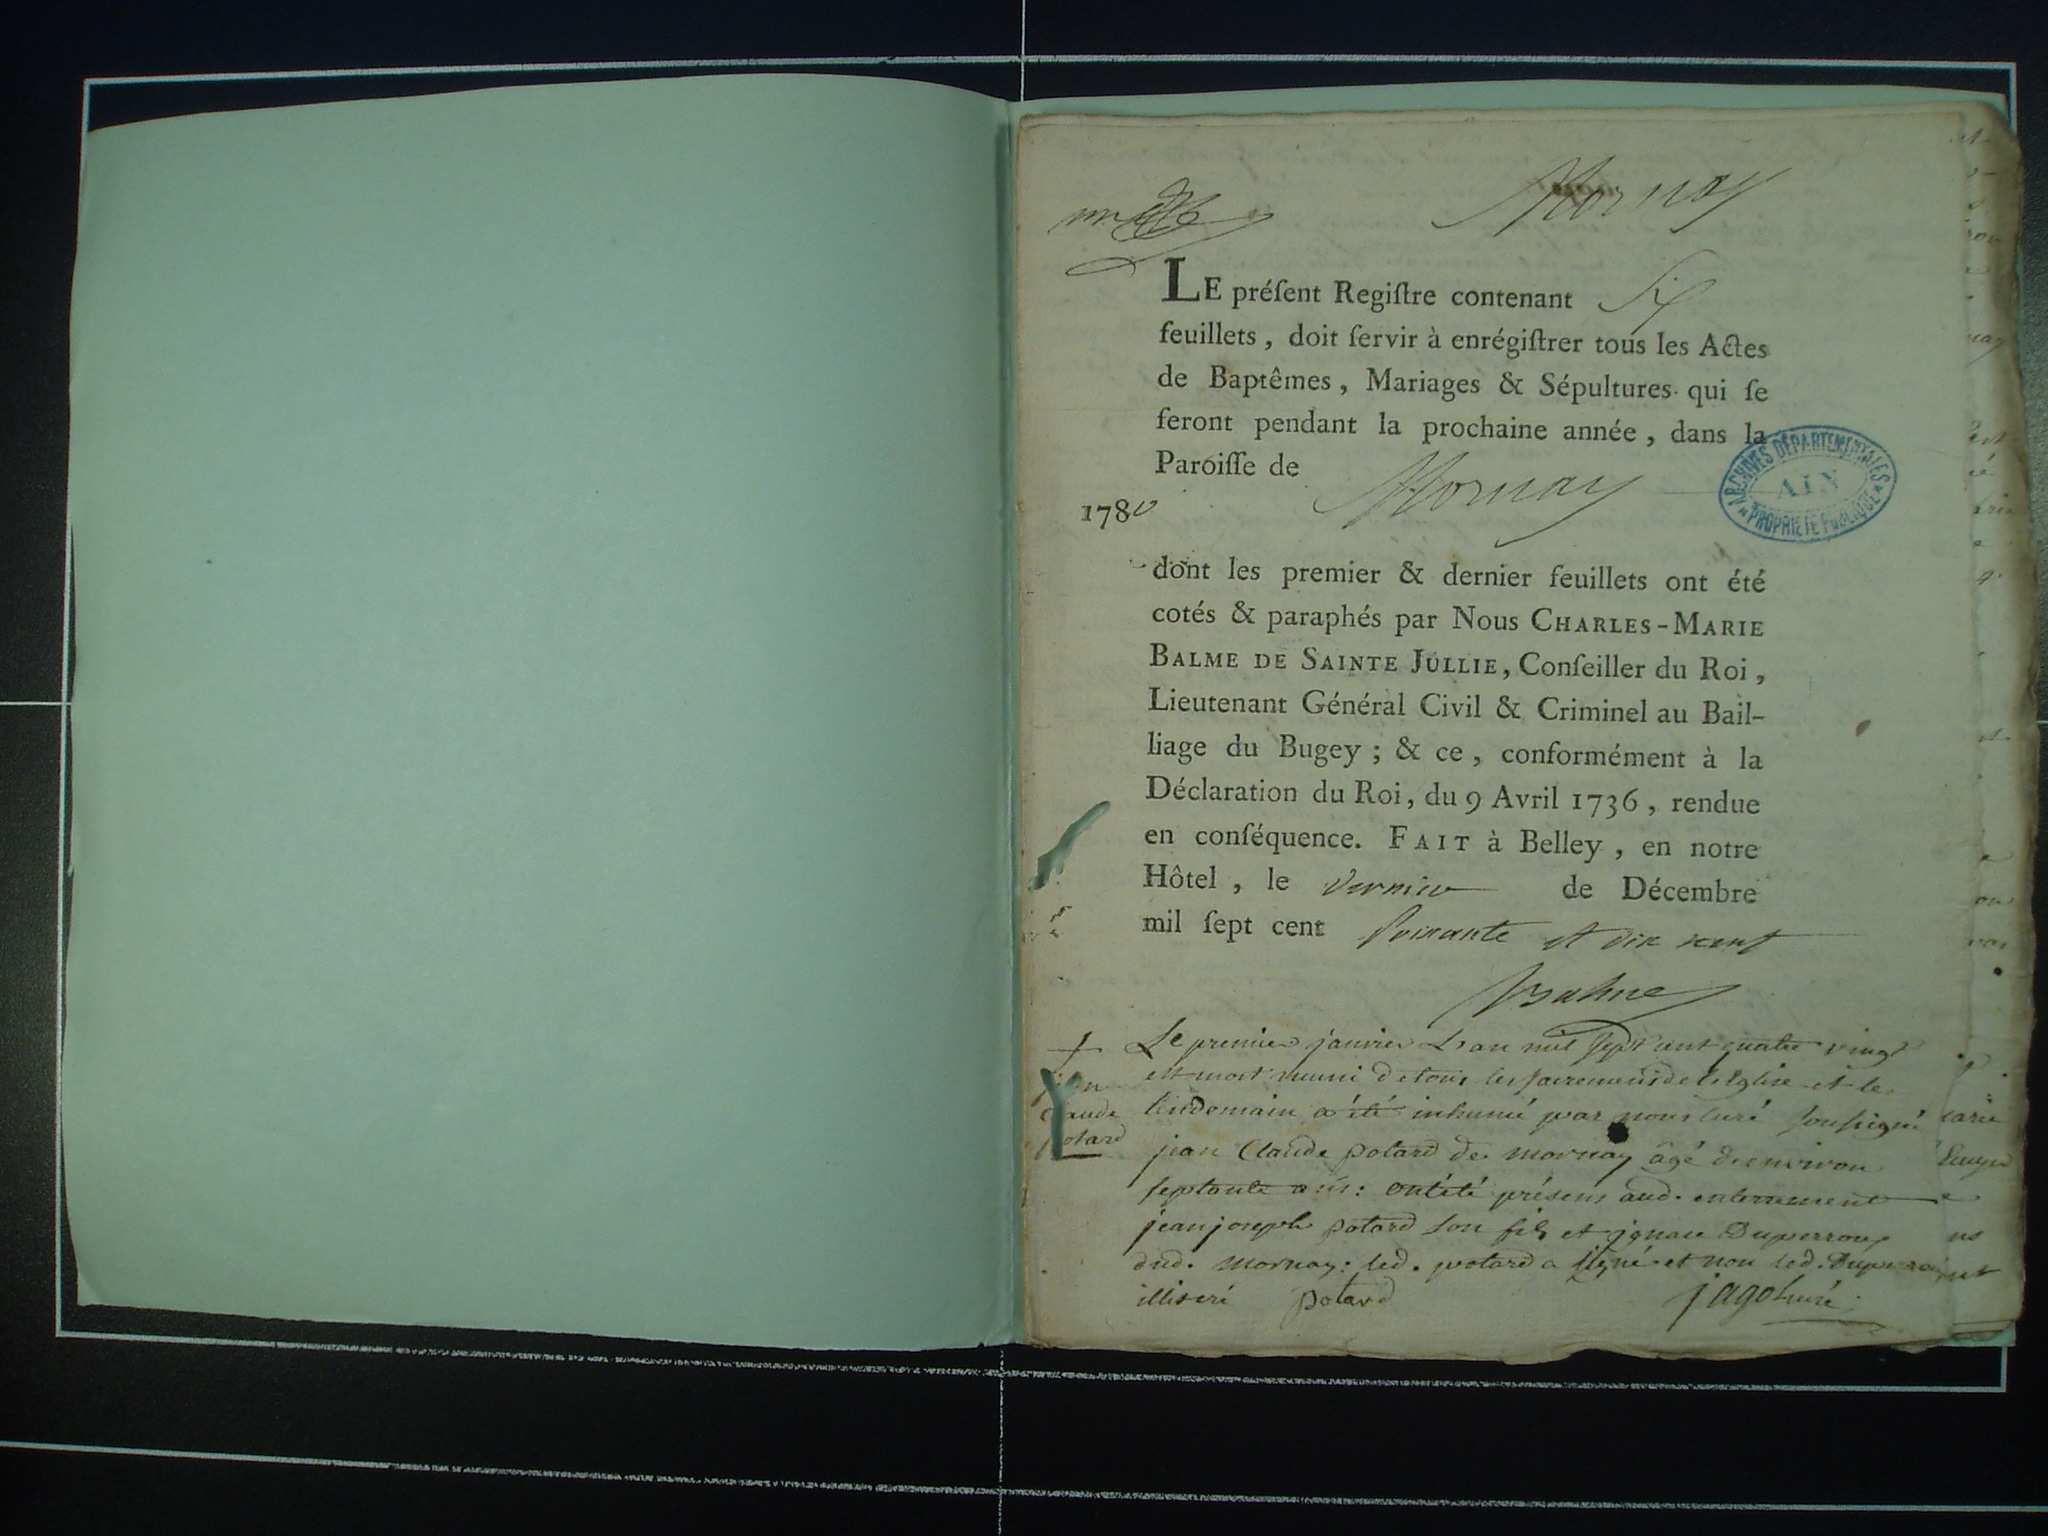 Mornay
LE préſent Regiſtre contenant Six
feuillets, doit ſervir à enrégiſtrer tous les Actes
de Baptêmes, Mariages & Sépultures qui ſe
feront pendant la prochaine année, dans la
Paroiſſe de Mornay
1780
ARCHIVES DÉPARTEMENTALES
AIN
PROPRIÉTÉ PUBLIQUE
dont les premier & dernier feuillets ont été
cotés & paraphés par Nous CHARLES-MARIE
BALME DE SAINTE JULLIE, Conſeiller du Roi,
Lieutenant Général Civil & Criminel au Bail-
liage du Bugey ; & ce, conformément à la
Déclaration du Roi, du 9 Avril 1736, rendue
en conſéquence. FAIT à Belley, en notre
Hôtel, le dernier de Décembre
mil ſept cent soixante et dix neuf
Balme
Le premier janvier L'an mil sept cent quatre vingt
est mort muni de tous les sacremens de l'Eglise et le
lendemain a été inhumé par nous curé soussigné
jean Claude potard de mornay âgé d'environ
septante ans: ont été présens aud. enterrement
jean joseph potard son fils et ignace Duperroux
dud. mornay: led. potard a signé et non led.
illiteré potard
claude
potard